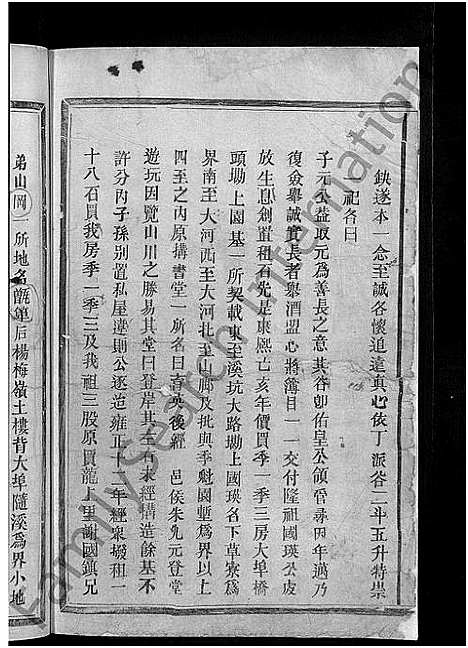 缺遂本一念至誠各懷追遠真心依丁派谷二斗五升特祟
祀各曰
子元公益取元為善長之意其谷卽佑皇公領管尋因年邁乃
復僉舉誠實長者舉酒盟心將簿目一一交付隆祖國瑛公皮
放生息創置租石先是康熙乙亥年價買季一季三房大埠橋
頭坳上園基一所契載東至溪坑大路坳上國瑛名下草寮為
界南至大河西至大河北至山脚及批與季魁園塹為界以上
四至之內原搆書堂一所名曰育英後經 邑侯朱先元登堂
遊玩因覽山川之勝易其堂曰登岸其至右未經搆造餘基不
許分內子孫別置私屋違則公逐造雍正十二年經衆撥租一
十八石買我房季一季三及我祖三股原買龍上里謝國鎮兄
弟山岡一所地名甑箄后楊梅嶺土樓背大埠隨溪為界小地
FamilySearch International